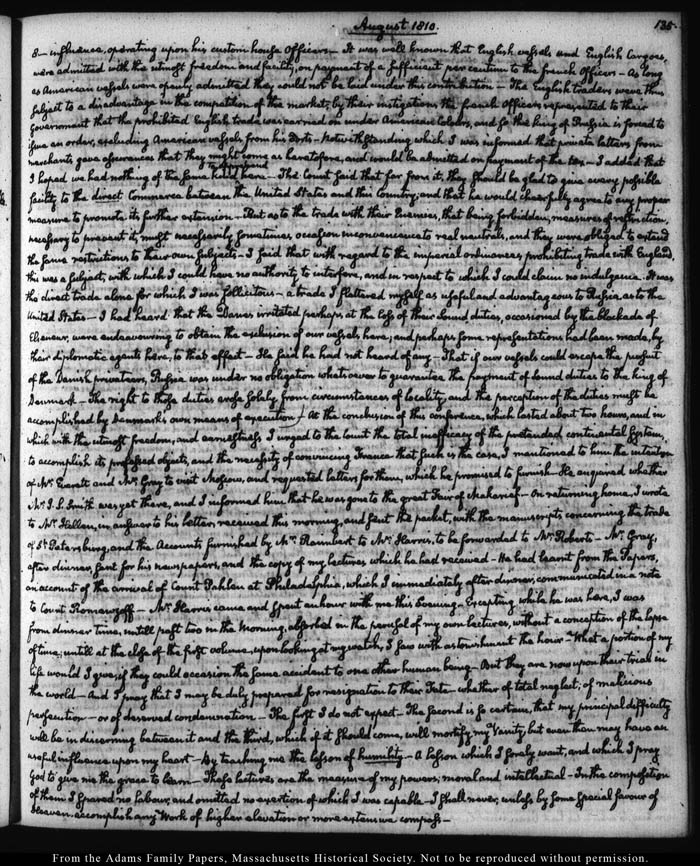 August 1810.
135.
8— influence, operating upon his custom house Officers— It was well known that English vessels and English Cargoes,
were admitted with the utmost freedom and facility, on payment of a sufficient per centum to the french Officers— As long
as American vessels were openly admitted they could not be laid under this contribution— The English traders were thus
subject to a disadvantage in the competition of the market; by their instigations the french Officers represented to their
Government that the prohibited English trade was carried on under American Colours, and so the king of Prussia is forced to
issue an order, excluding American vessels from his Ports— Notwithstanding which I was informed that private letters from
merchants gave assurances that they might come as heretofore, and would be admitted on payment of the tax— I added that
I hoped we had nothing of the same kind here— The Count said that far from it, they should be glad to give every possible
facility to the direct Commerce between the United States and this Country; and that he would cheerfully agree to any proper
measure to promote its further extension— But as to the trade with their Enemies, that being forbidden, measures of restriction,
necessary to prevent it, might necessarily sometimes, occasion inconvenience to real neutrals, and they were obliged to extend
the same restrictions to their own subjects— I said that with regard to the imperial ordinances prohibiting trade with England,
this was a subject, with which I could have no authority to interfere, and in respect to which I could claim no indulgence. It was
the direct trade alone for which I was sollicitous— a trade I flattered myself as useful and advantageous to Russia, as to the
United States— I had heard that the Danes irritated perhaps, at the loss of their Sound duties, occasioned by the blockade of
Elseneur, were endeavouring to obtain the exclusion of our vessels here; and perhaps some representations had been made, by
their diplomatic agents here, to that effect— He said he had not heard of any— That if our vessels could escape the pursuit
of the Danish privateers, Russia was under no obligation whatsoever to guarantee the payment of Sound duties to the king of
Denmark— The right to those duties arose solely from circumstances of locality, and the perception of the duties must be
accomplished by Denmark's own means of execution— At the conclusion of this conference, which lasted about two hours, and in
which with the utmost freedom, and earnestness I urged to the Count the total inefficacy of the pretended continental System,
to accomplish its professed objects, and the necessity of convincing France that such is the case, I mentioned to him the intention
of Mr. Everett and Mr. Gray to visit Moscow, and requested letters for them, which he promised to furnish— He enquired whether
Mr. J. S. Smith was yet there, and I informed him that he was gone to the great Fair of Makarief— On returning home, I wrote
to Mr. Hellen, in answer to his letter, received this morning, and sent the packet, with the manuscripts concerning the trade
of St. Petersburg, and the Accounts furnished by Mr. Raimbert to Mr. Harris, to be forwarded to Mr. Robert— Mr. Gray,
after dinner, sent for his newspapers, and the copy of my lectures which he had received— He had learnt from the Papers,
an account of the arrival of Count Pahlen at Philadelphia, which I immediately after dinner, communicated in a note
to Count Romanzoff— Mr. Harris came and spent an hour with me this Evening— Excepting while he was here, I was
from dinner time, untill past two in the Morning, absorbed in the perusal of my own lectures, without a conception of the lapse
of time, untill at the close of the first volume, upon looking at my watch, I saw with astonishment the hour— What a portion of my
life would I give, if they could occasion the same accident to one other human being— But they are now upon their trial in
the world— And I pray that I may be duly prepared for resignation to their Fate— whether of total neglect, of malicious
persecution— or of deserved condemnation— The first I do not expect— The second is so certain, that my principal difficulty
will be in discerning between it and the third, which if it should come, will mortify my Vanity, but even then may have an
useful influence upon my heart— By teaching me the lesson of humility— A lesson which I sorely want, and which I pray
God to give me the grace to learn— These lectures are the measure of my powers, moral and intellectual— In the composition
of them I spared no labour, and omitted no exertion of which I was capable— I shall never, unless by some special favour of
Heaven accomplish any Work of higher elevation or more extensive compass—
From the Adams Family Papers, Massachusetts Historical Society. Not to be reproduced without permission.